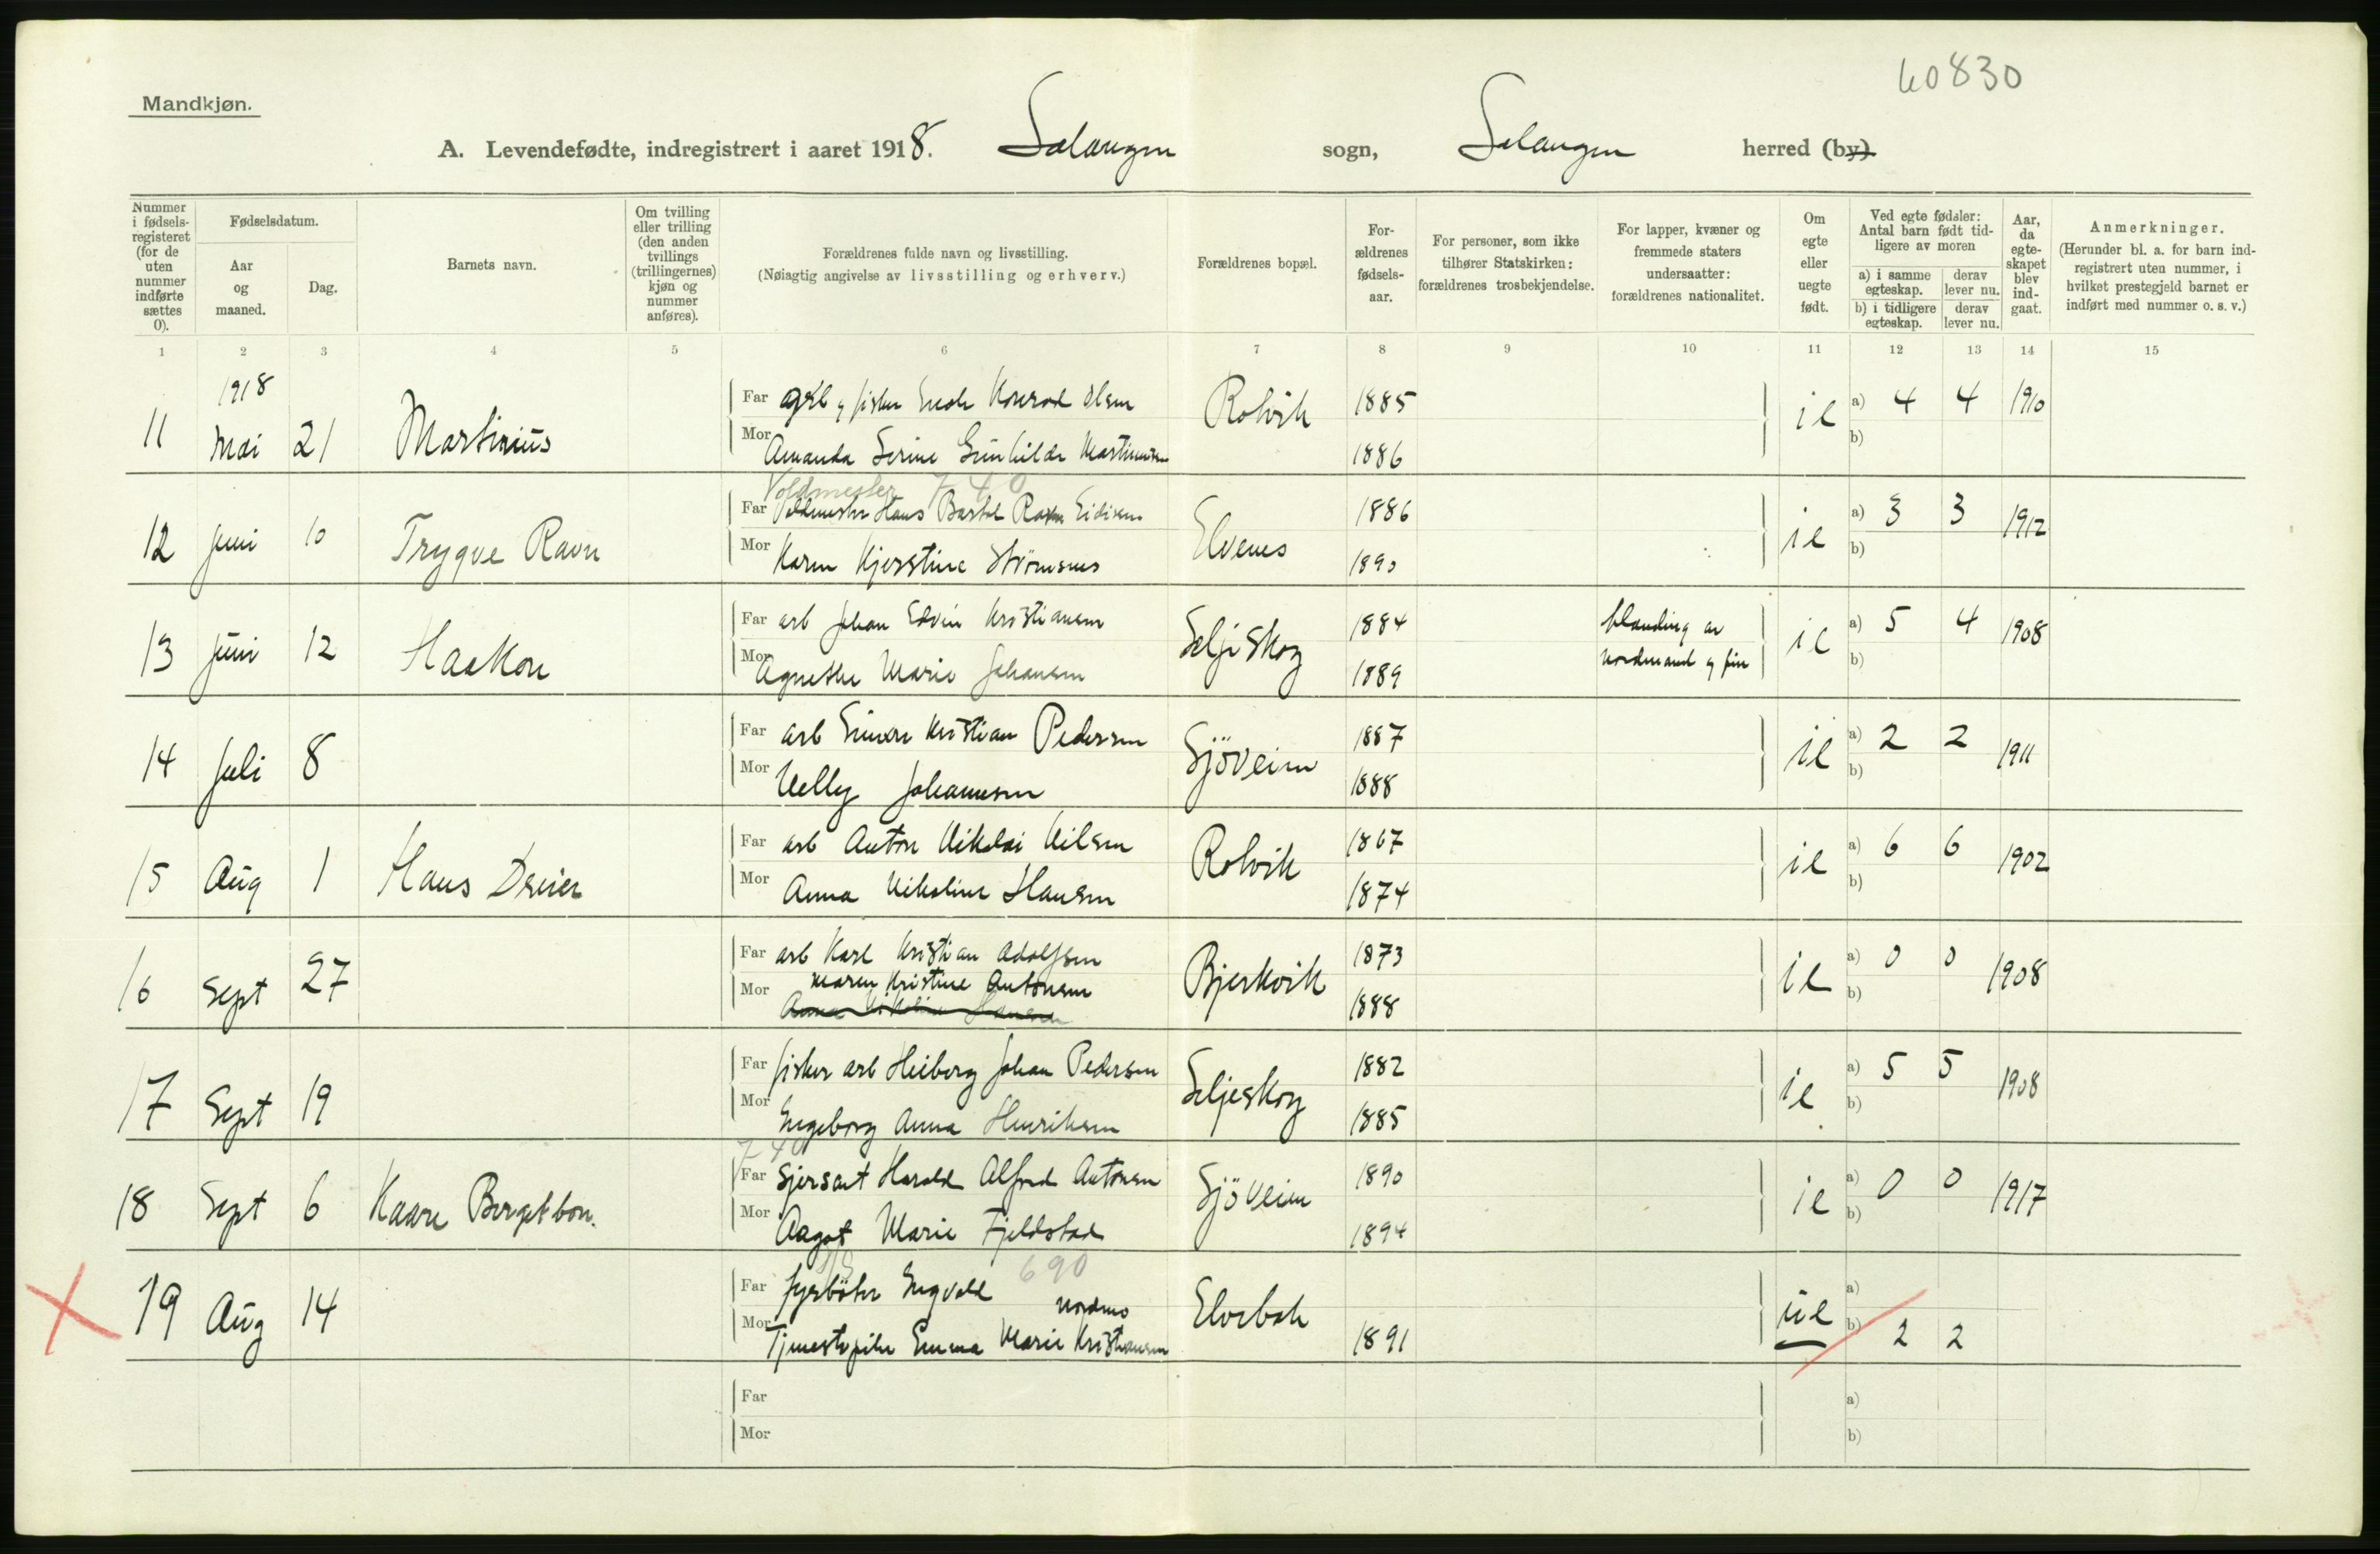 60830
Mandkjøn.
A. Levendefødte, indregistrert i aaret 1918. Salangen sogn, Salangen herred (by)
Nummer i fødsels-registeret (for de uten nummer indførte sættes 0).
Fødselsdatum.
Aar og maaned.
Dag.
Barnets navn.
Om tvilling eller trilling (den anden tvillings (trillingernes) kjøn og nummer anføres).
Forældrenes fulde navn og livsstilling.
(Nøiagtig angivelse av livsstilling og erhverv.)
Forældrenes bopæl.
For-ældrenes fødsels-aar.
For personer, som ikke tilhører Statskirken: forældrenes trosbekjendelse.
For lapper, kvæner og fremmede staters undersaatter: forældrenes nationalitet.
Om egte eller uegte født.
Ved egte fødsler: Antal barn født tid-ligere av moren
a) i samme egteskap. derav lever nu.
b) i tidligere egteskap. derav lever nu.
Aar, da egte-skapet blev ind-gaat.
Anmerkninger.
(Herunder bl. a. for barn ind-registrert uten nummer, i hvilket prestegjeld barnet er indført med nummer o. s. v.)
1 2 3 4 5 6 7 8 9 10 11 12 13 14 15
1918
11 Mai 21 Martinius Far fisker Konrad Olsen Rotvik 1885 ie a) 4 4 1910
Mor Amanda Serine Gunhilde 1886 b)
Voldmester 740
12 Juni 10 Trygve Ravn Far Voldmester Hans Bartol Ravn Eidisen Elvenes 1886 ie a) 3 3 1912
Mor Karen Kjerstine Strømsnes 1890 b)
13 Juni 12 Haakon Far arb Johan Edvin Kristiansen Seljiskog 1884 blanding av ie a) 5 4 1908
Mor Agnethe Marie Johansen 1889 nordmand og fin b)
14 Juli 8 Far arb Simon Kristian Pedersen Sjöveien 1887 ie a) 2 2 1911
Mor Nelly Johannesen 1888 b)
15 Aug 1 Hans Dreier Far arb Anton Nikolai Nilsen Rotvik 1867 ie a) 6 6 1902
Mor Anna Nikoline Hansen 1874 b)
16 Sept 27 Far arb Karl Kristian Adolfsen Bjerkvik 1873 ie a) 0 0 1908
Mor Maren Kristine Antonsen 1888 b)
Anna Nikoline Hansen
17 Sept 19 Far fisker arb Heiberg Johan Pedersen Seljeskog 1882 ie a) 5 5 1908
Mor Ingeborg Anna Henriksen 1885 b)
740
18 Sept 6 Kaare Bergetbon. Far Sjersant Harald Alfred Antonsen Sjöveien 1890 ie a) 0 0 1917
Mor Aagot Marie Fjeldstad 1894 b)
690
19 Aug 14 Far fyrböter Ingvald Nordmo Elvebak ue a)
Mor Emma Marie Kristiansen 1891 b) 2 2
Far a)
Mor b)